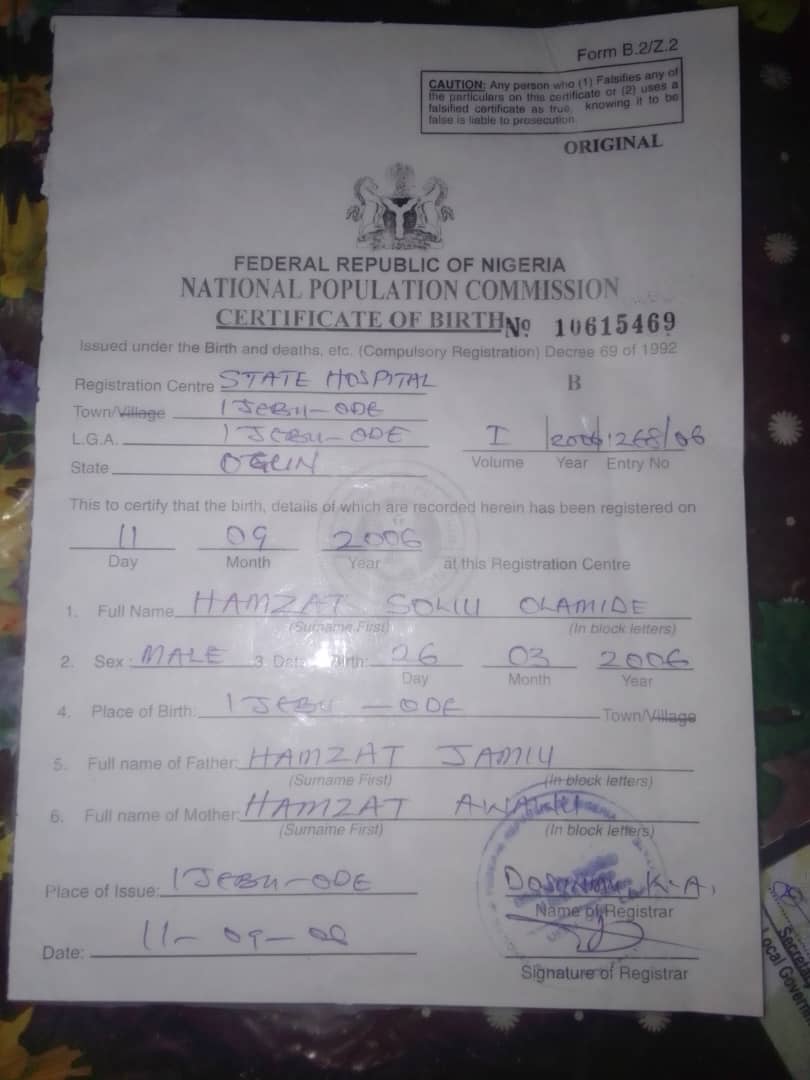 Form B.2/Z.2
CAUTION: Any person who (1) Falsifies any of
the particulars on this certificate or (2) uses a
falsified certificate as true, knowing it to be
false is liable to prosecution
ORIGINAL
FEDERAL REPUBLIC OF NIGERIA
NATIONAL POPULATION COMMISSION
CERTIFICATE OF BIRTH No 10615469
Issued under the Birth and deaths, etc. (Compulsory Registration) Decree 69 of 1992
Registration Centre STATE HOSPITAL B
Town/Village IJEBU-ODE
L.G.A. IJEBU-ODE I 2006 1268/06
State OGUN Volume Year Entry No
This to certify that the birth, details of which are recorded herein has been registered on
11 09 2006
Day Month Year at this Registration Centre
1. Full Name HAMZAT SOLIU OLAMIDE
(Surname First) (In block letters)
2. Sex: MALE 3 Date Birth: 26 03 2006
Day Month Year
4. Place of Birth: IJEBU-ODE Town/Village
5. Full name of Father: HAMZAT JAMIU
(Surname First) (In block letters)
6. Full name of Mother: HAMZAT
(Surname First) (In block letters)
Place of Issue: IJEBU-ODE K.A.
Name of Registrar
Date: 11-09-
Signature of Registrar
Local